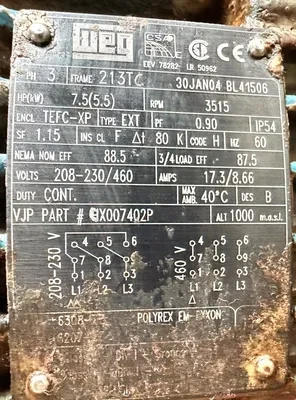 WEG CSA CE
EEV 78282 LR 50962
PH 3 FRAME 213TC 30JAN04 BL41506
HP(kW) 7.5(5.5) RPM 3515
ENCL TEFC-XP TYPE EXT PF 0.90 IP54
SF 1.15 INS CL F Δt 80 K CODE H HZ 60
NEMA NOM EFF 88.5 3/4 LOAD EFF 87.5
VOLTS 208-230/460 AMPS 17.3/8.66
DUTY CONT. MAX AMB. 40°C DES B
VJP PART # GX007402P ALT 1000 m.a.s.l.
208-230 V 4 5 6 460 V 4 5 6
7 8 9 7 8 9
1 2 3 1 2 3
L1 L2 L3 L1 L2 L3
6308 POLYREX EM-EXXON
6207